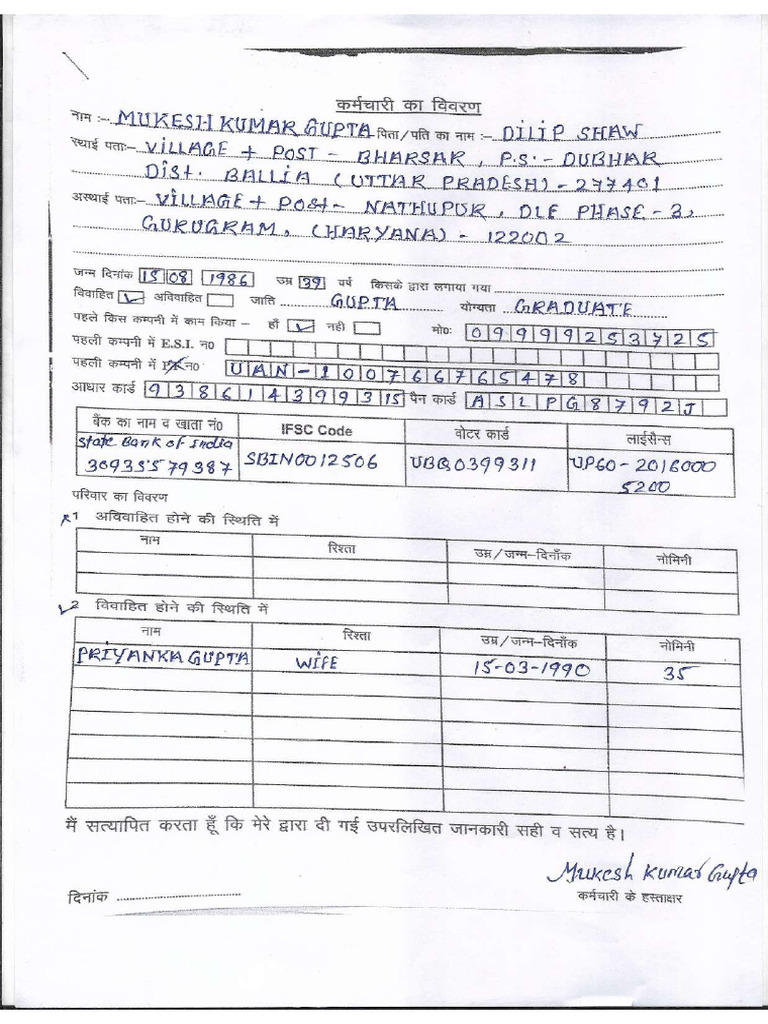 कर्मचारी का विवरण
नाम :- MUKESH KUMAR GUPTA पिता/पति का नाम :- DILIP SHAW
स्थाई पताः- VILLAGE + POST - BHARSAR, P.S:- DUBHAR
Dist. BALLIA (UTTAR PRADESH) - 277401
अस्थाई पताः- VILLAGE + Post - NATHUPUR, DLF PHASE - 3,
GURUGRAM, (HARYANA) - 122002
जन्म दिनांक 15 08 1986 उम्र 39 वर्ष किसके द्वारा लगाया गया
विवाहित ✓ अविवाहित जाति GUPTA योग्यता GRADUATE
पहले किस कम्पनी में काम किया – हाँ ✓ नही मो०: 09999253725
पहली कम्पनी में E.S.I. न0
पहली कम्पनी में न0 UAN-100766765478
आधार कार्ड 938614399315 पैन कार्ड ASLPG8792J
बैंक का नाम व खाता नं0 IFSC Code वोटर कार्ड लाईसैन्स
State Bank of India
30935579387 SBIN0012506 UBQ0399311 UP60-2016000
5200
परिवार का विवरण
x1 अविवाहित होने की स्थिति में
नाम रिश्ता उम्र/जन्म-दिनाँक नोमिनी
✓2 विवाहित होने की स्थिति में
नाम रिश्ता उम्र/जन्म-दिनाँक नोमिनी
PRIYANKA GUPTA WIFE 15-03-1990 35
मैं सत्यापित करता हूँ कि मेरे द्वारा दी गई उपरलिखित जानकारी सही व सत्य है।
Mukesh Kumar Gupta
दिनांक कर्मचारी के हस्ताक्षर